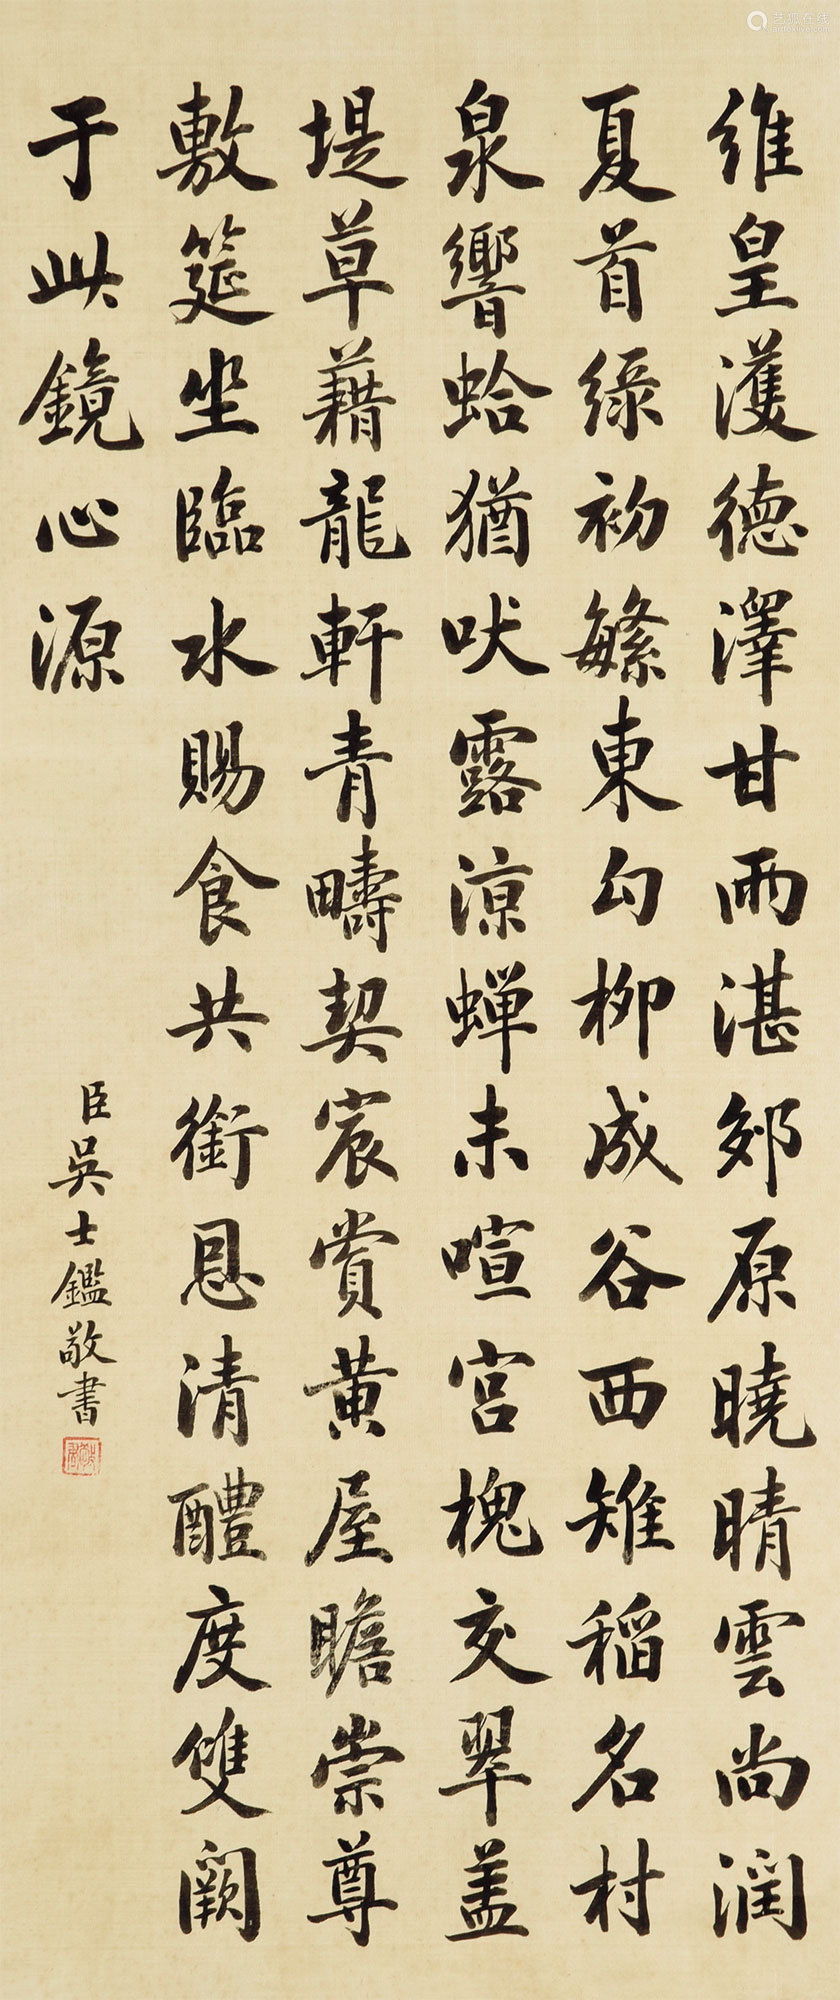 維皇濩德澤甘雨湛郊原曉晴雲尚潤
夏首緑初繁東勾柳成谷西雉稻名村
泉響蛤猶吠露涼蟬未喧宮槐交翠盖
堤草藉龍軒青疇契宸賞黄屋瞻崇尊
敷筵坐臨水賜食共銜恩清醴度雙闕
于此鏡心源
臣吳士鑑敬書
艺狐在线
artfoxlive.com